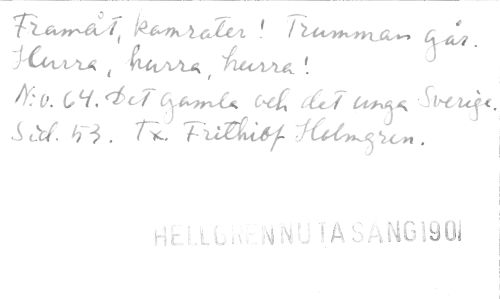 Framåt, kamrater! Trumman går.
Hurra, hurra, hurra!
N:o. 64. Det gamla och det unga Sverige.
Sid. 53. Tx. Frithiof Holmgren.
HELLGRENNUTASANG1901